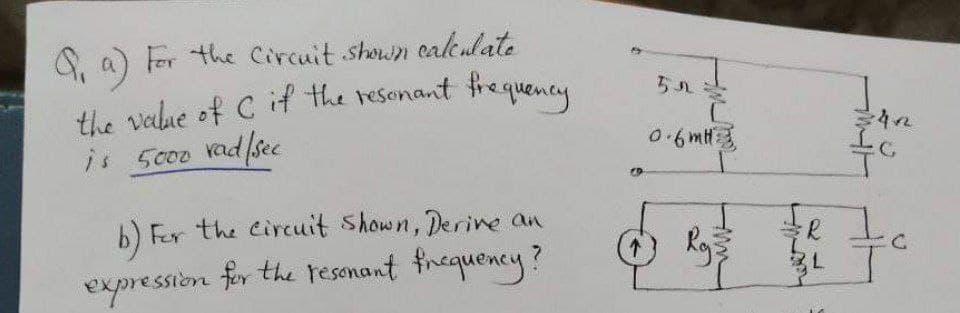 Q1 a) For the circuit shown calculate
the value of C if the resonant frequency
is 5000 rad/sec
5Ω
0.6mH
4Ω
C
b) For the circuit shown, Derive an
expression for the resonant frequency?
Rg
R
L
C